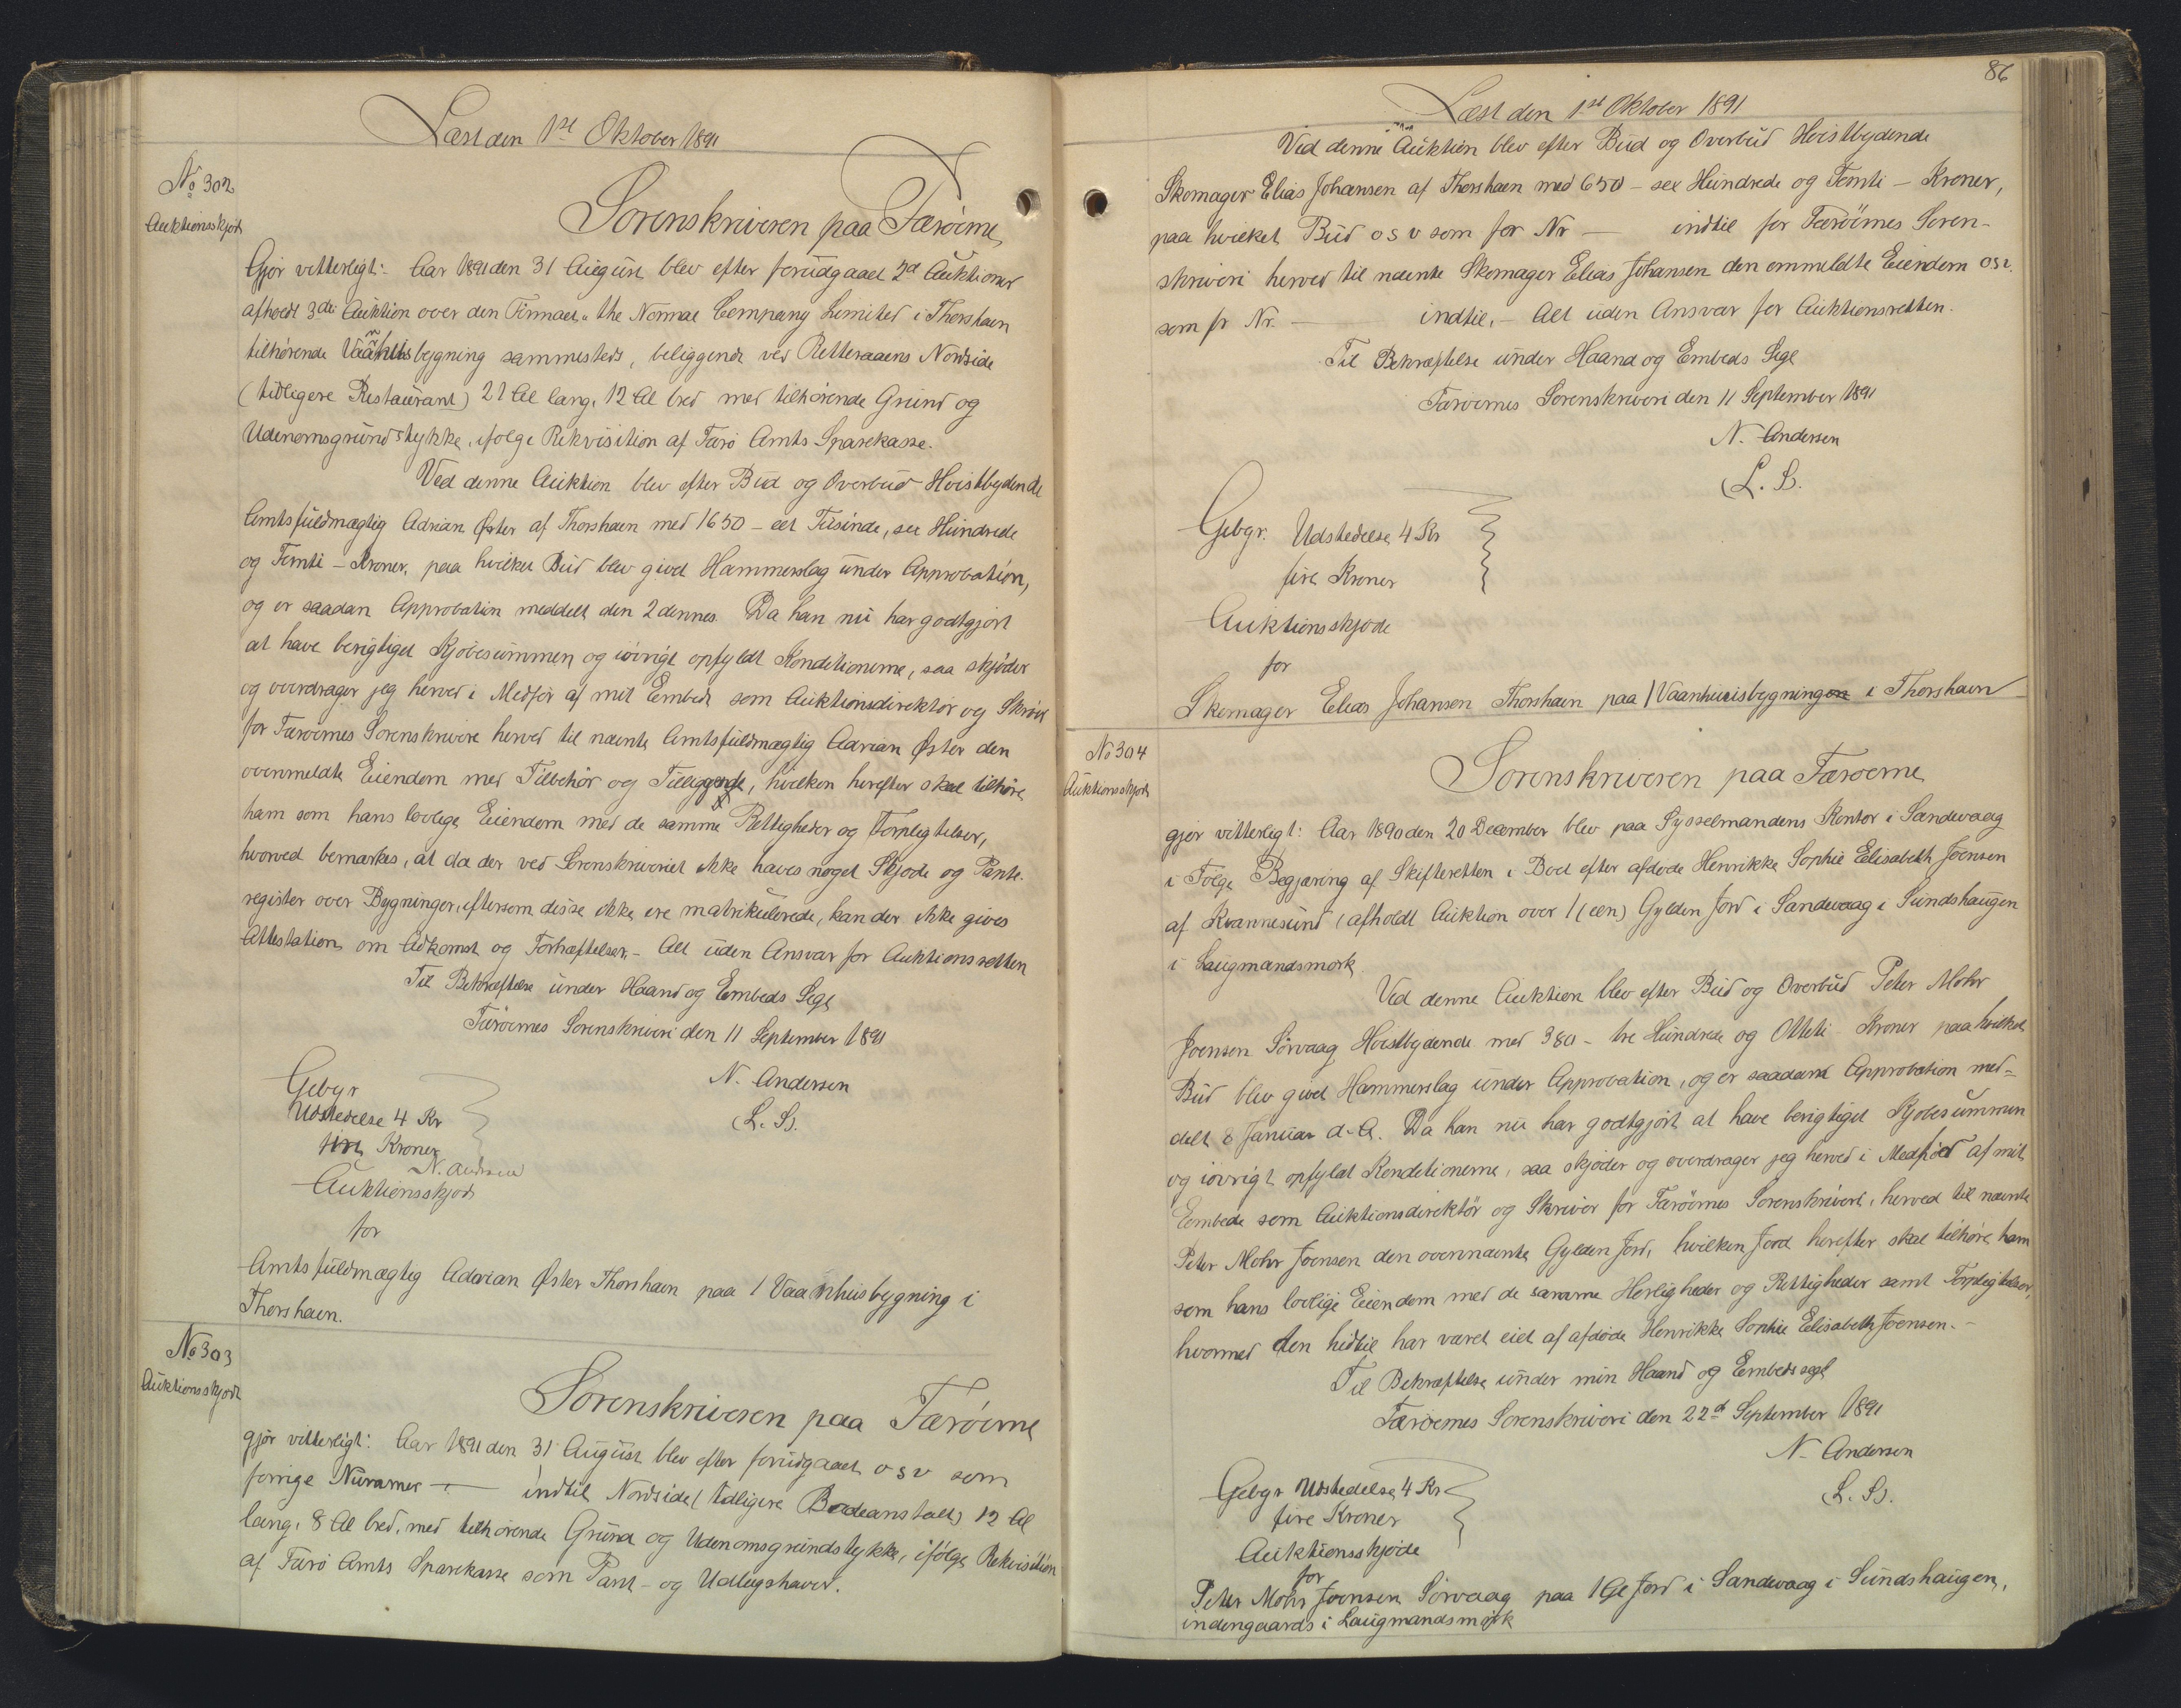 Læst den 1ste Oktober 1891
No 302
Auktionsskjøde
Sorenskriveren paa Færøerne
Gjør vitterligt: Aar 1891 den 31 August blev efter forudgaaet 2de Auktioner
afholdt 3die Auktion over den Firmaet "the Normal Company Limited i Thorshavn
tilhørende Vaanhusbygning sammesteds, beliggende ved Retteraaens Nordside
(tidligere Restaurant) 21 Al lang, 12 Al bred med tilhørende Grund og
Udenomsgrundstykke, ifølge Rekvisition af Færø Amts Sparekasse.
Ved denne Auktion blev efter Bud og Overbud Høistbydende
Amtsfuldmægtig Adrian Øster af Thorshavn med 1650 - eet Tusinde, sex Hundrede
og Femti - Kroner, paa hvilket Bud blev givet Hammerslag under Approbation,
og er saadan Approbation meddelt den 2 dennes. Da han nu har godtgjort
at have berigtiget Kjøbesummen og iøvrigt opfyldt Konditionerne, saa skjøder
og overdrager jeg herved i Medfør af mit Embede som Auktionsdirektør og Skriver
for Færøernes Sorenskriveri herved til nævnte Amtsfuldmægtig Adrian Øster den
ovenmeldte Eiendom med Tilbehør og Tilliggende, hvilken herefter skal tilhøre
ham som hans lovlige Eiendom med de samme Rettigheder og Forpligtelser,
hvorved bemærkes, at da der ved Sorenskriveriet ikke haves noget Skjøde og Pante-
register over Bygninger, eftersom disse ikke ere matrikulerede, kan der ikke gives
Attestation om Adkomst og Forhæftelser. - Alt uden Ansvar for Auktionsretten
Til Bekræftelse under Haand og Embeds Segl
Færøernes Sorenskriveri den 11 September 1891
N. Andersen
L. S.
Gebyr
Udstedelse 4 Kr
fire Kroner
N. Andersen
Auktionsskjøde
for
Amtsfuldmægtig Adrian Øster Thorshavn paa 1 Vaanhusbygning i
Thorshavn.
No 303
Auktionsskjøde
Sorenskriveren paa Færøerne
gjør vitterligt: Aar 1891 den 31 August blev efter forudgaaet osv som
forrige Nummer — indtil Nordside (tidligere Badeanstalt) 12 Al
lang, 8 Al bred, med tilhørende Grund og Udenomsgrundstykke, ifølge Rekvisition
af Færø Amts Sparekasse som Pant- og Udlægshaver.
86
Læst den 1ste Oktober 1891
Ved denne Auktion blev efter Bud og Overbud Høistbydende
Skomager Elias Johansen af Thorshavn med 650 - sex Hundrede og Femti - Kroner,
paa hvilket Bud osv som for Nr — indtil for Færøernes Soren-
skriveri herved til nævnte Skomager Elias Johansen den ommeldte Eiendom osv.
som fr Nr. — indtil, - Alt uden Ansvar for Auktionsretten.
Til Bekræftelse under Haand og Embeds Segl
Færøernes Sorenskriveri den 11 September 1891
N. Andersen
L. S.
Gebyr. Udstedelse 4 Kr
fire Kroner
Auktionsskjøde
for
Skomager Elias Johansen Thorshavn paa 1 Vaanhuusbygning i Thorshavn
No 304
Auktionsskjøde
Sorenskriveren paa Færøerne
gjør vitterligt: Aar 1890 den 20 December blev paa Sysselmandens Kontor i Sandevaag
i Følge Begjæring af Skifteretten i Boet efter afdøde Henrikke Sophie Elisabeth Joensen
af Kvannesund, afholdt Auktion over 1 (een) Gylden Jord i Sandevaag i Sundshaugen
i Laugmandsmork.
Ved denne Auktion blev efter Bud og Overbud Peter Mohr
Joensen Sørvaag Høistbydende med 380 - tre Hundrede og Otteti - Kroner paa hvilket
Bud blev givet Hammerslag under Approbation, og er saadan Approbation med-
delt 8 Januar d. A. Da han nu har godtgjort at have berigtiget Kjøbesummen
og iøvrigt opfyldt Konditionerne, saa skjøder og overdrager jeg herved i Medfør af mit
Embede som Auktionsdirektør og Skriver for Færøernes Sorenskriveri, herved til nævnte
Peter Mohr Joensen den ovennævnte Gylden Jord, hvilken Jord herefter skal tilhøre ham
som hans lovlige Eiendom med de samme Herligheder og Rettigheder samt Forpligtelser,
hvormed den hidtil har været eiet af afdøde Henrikke Sophie Elisabeth Joensen. -
Til Bekræftelse under min Haand og Embedssegl
Færøernes Sorenskriveri den 22de September 1891
N. Andersen
L. S.
Gebyr Udstedelse 4 Kr
fire Kroner
Auktionsskjøde
for
Peter Mohr Joensen Sørvaag paa 1 Gl Jord i Sandevaag i Sundshaugen,
indengaards i Laugmandsmørk